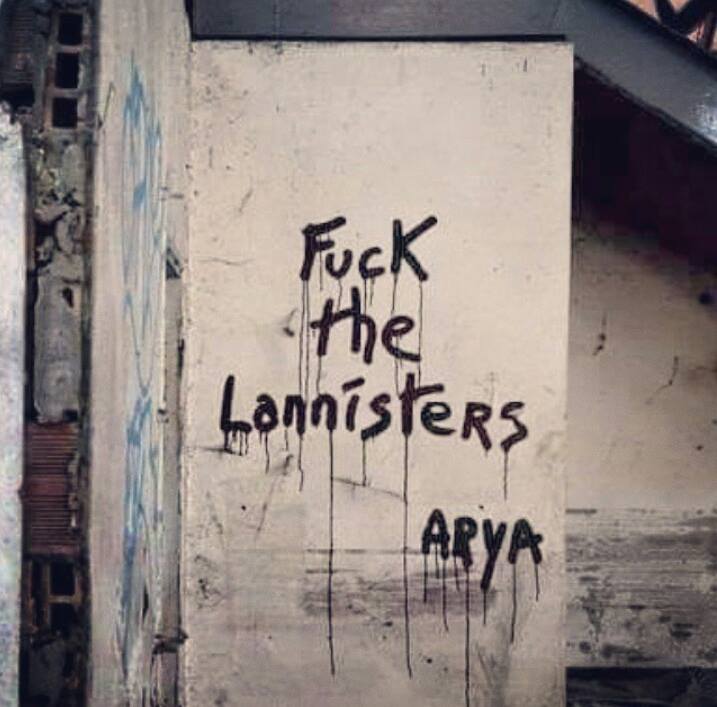 Fuck
the
Lannisters
ARYA